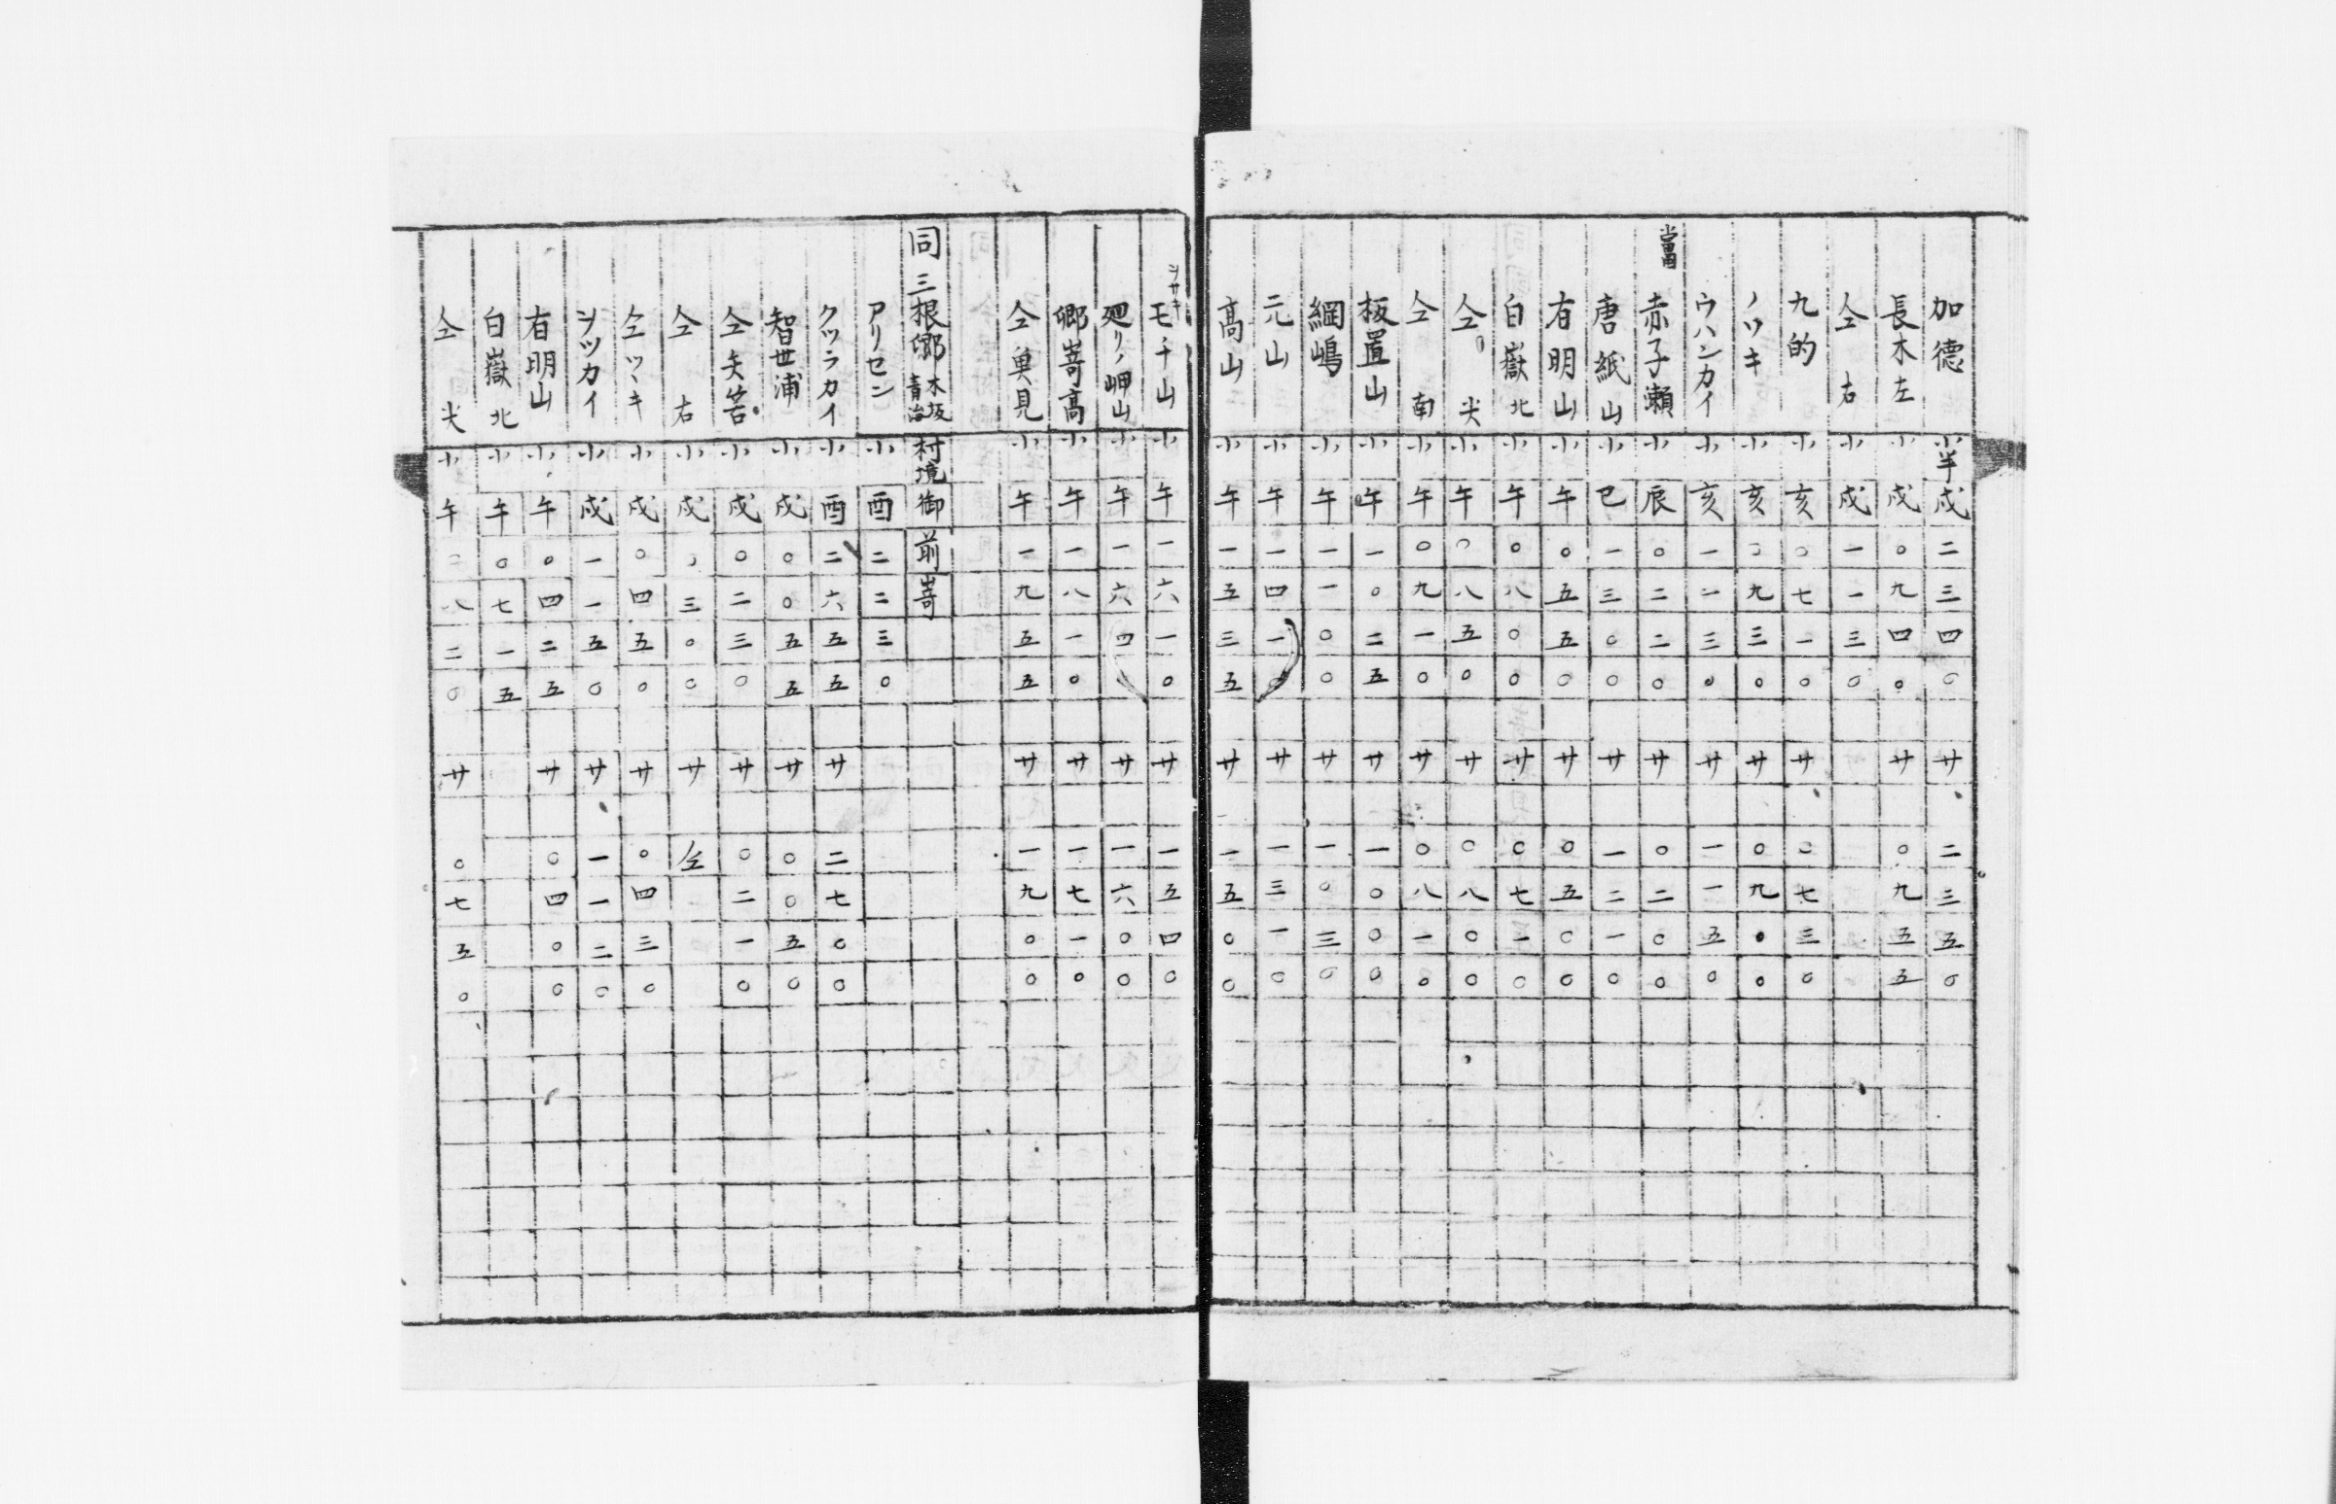 加德 小半 戌 二三四〇 廿 二三五〇
長木左 小 戌 〇九四〇 廿 〇九五五
仝右 小 戌 一一三〇
九的 小 亥 〇七一〇 廿 〇七三〇
ノツキ 小 亥 〇九三〇 廿 〇九〇〇
ウハンカイ 小 亥 一一三〇 廿 一一五〇
當 赤子瀬 小 辰 〇二二〇 廿 〇二〇〇
唐紙山 小 巳 一三〇〇 廿 一二一〇
有明山 小 午 〇五五〇 廿 〇五〇〇
白嶽北 小 午 〇八〇〇 廿 〇七一〇
仝尖 小 午 〇八五〇 廿 〇八〇〇
仝南 小 午 〇九一〇 廿 〇八一〇
板置山 小 午 一〇二五 廿 一〇〇〇
綱嶋 小 午 一一〇〇 廿 一〇三〇
元山 小 午 一四一〇 廿 一三一〇
高山 小 午 一五三五 廿 一五〇〇
モチ山 小 午 一六一〇 廿 一五四〇
廻リノ岬山 小 午 一六四 廿 一六〇〇
郷嵜高 小 午 一八一〇 廿 一七一〇
仝奥見 小 午 一九五五 廿 一九〇〇
同三根郷 木坂 青海 村境御前嵜
アリセン 小 酉 二二三〇
クツラカイ 小 酉 二六五五 廿 二七〇〇
智世浦 小 戌 〇〇五五 廿 〇〇五〇
仝矢筈 小 戌 〇二三〇 廿 〇二一〇
仝右 小 戌 〇三〇〇 廿 仝
仝ツヽキ 小 戌 〇四五〇 廿 〇四三〇
ヲツカイ 小 戌 一一五〇 廿 一一二〇
有明山 小 午 〇四二五 廿 〇四〇〇
白嶽北 小 午 〇七一五
仝尖 小 午 〇八二〇 廿 〇七五〇